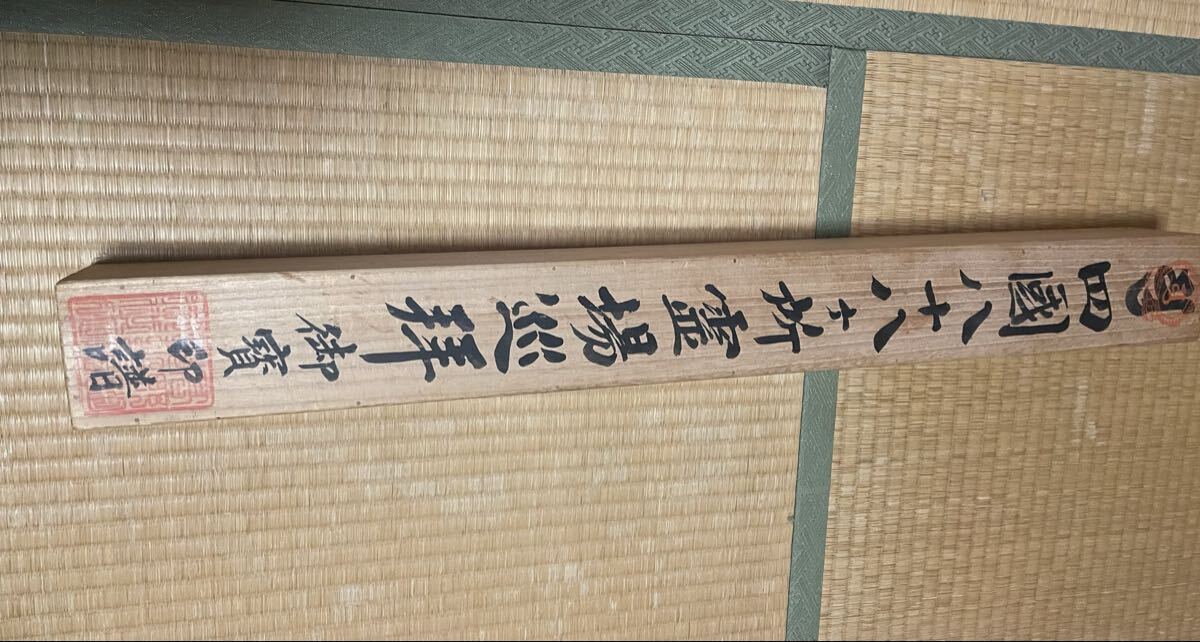 四國八十八ヶ所霊場巡拝
御寳印譜